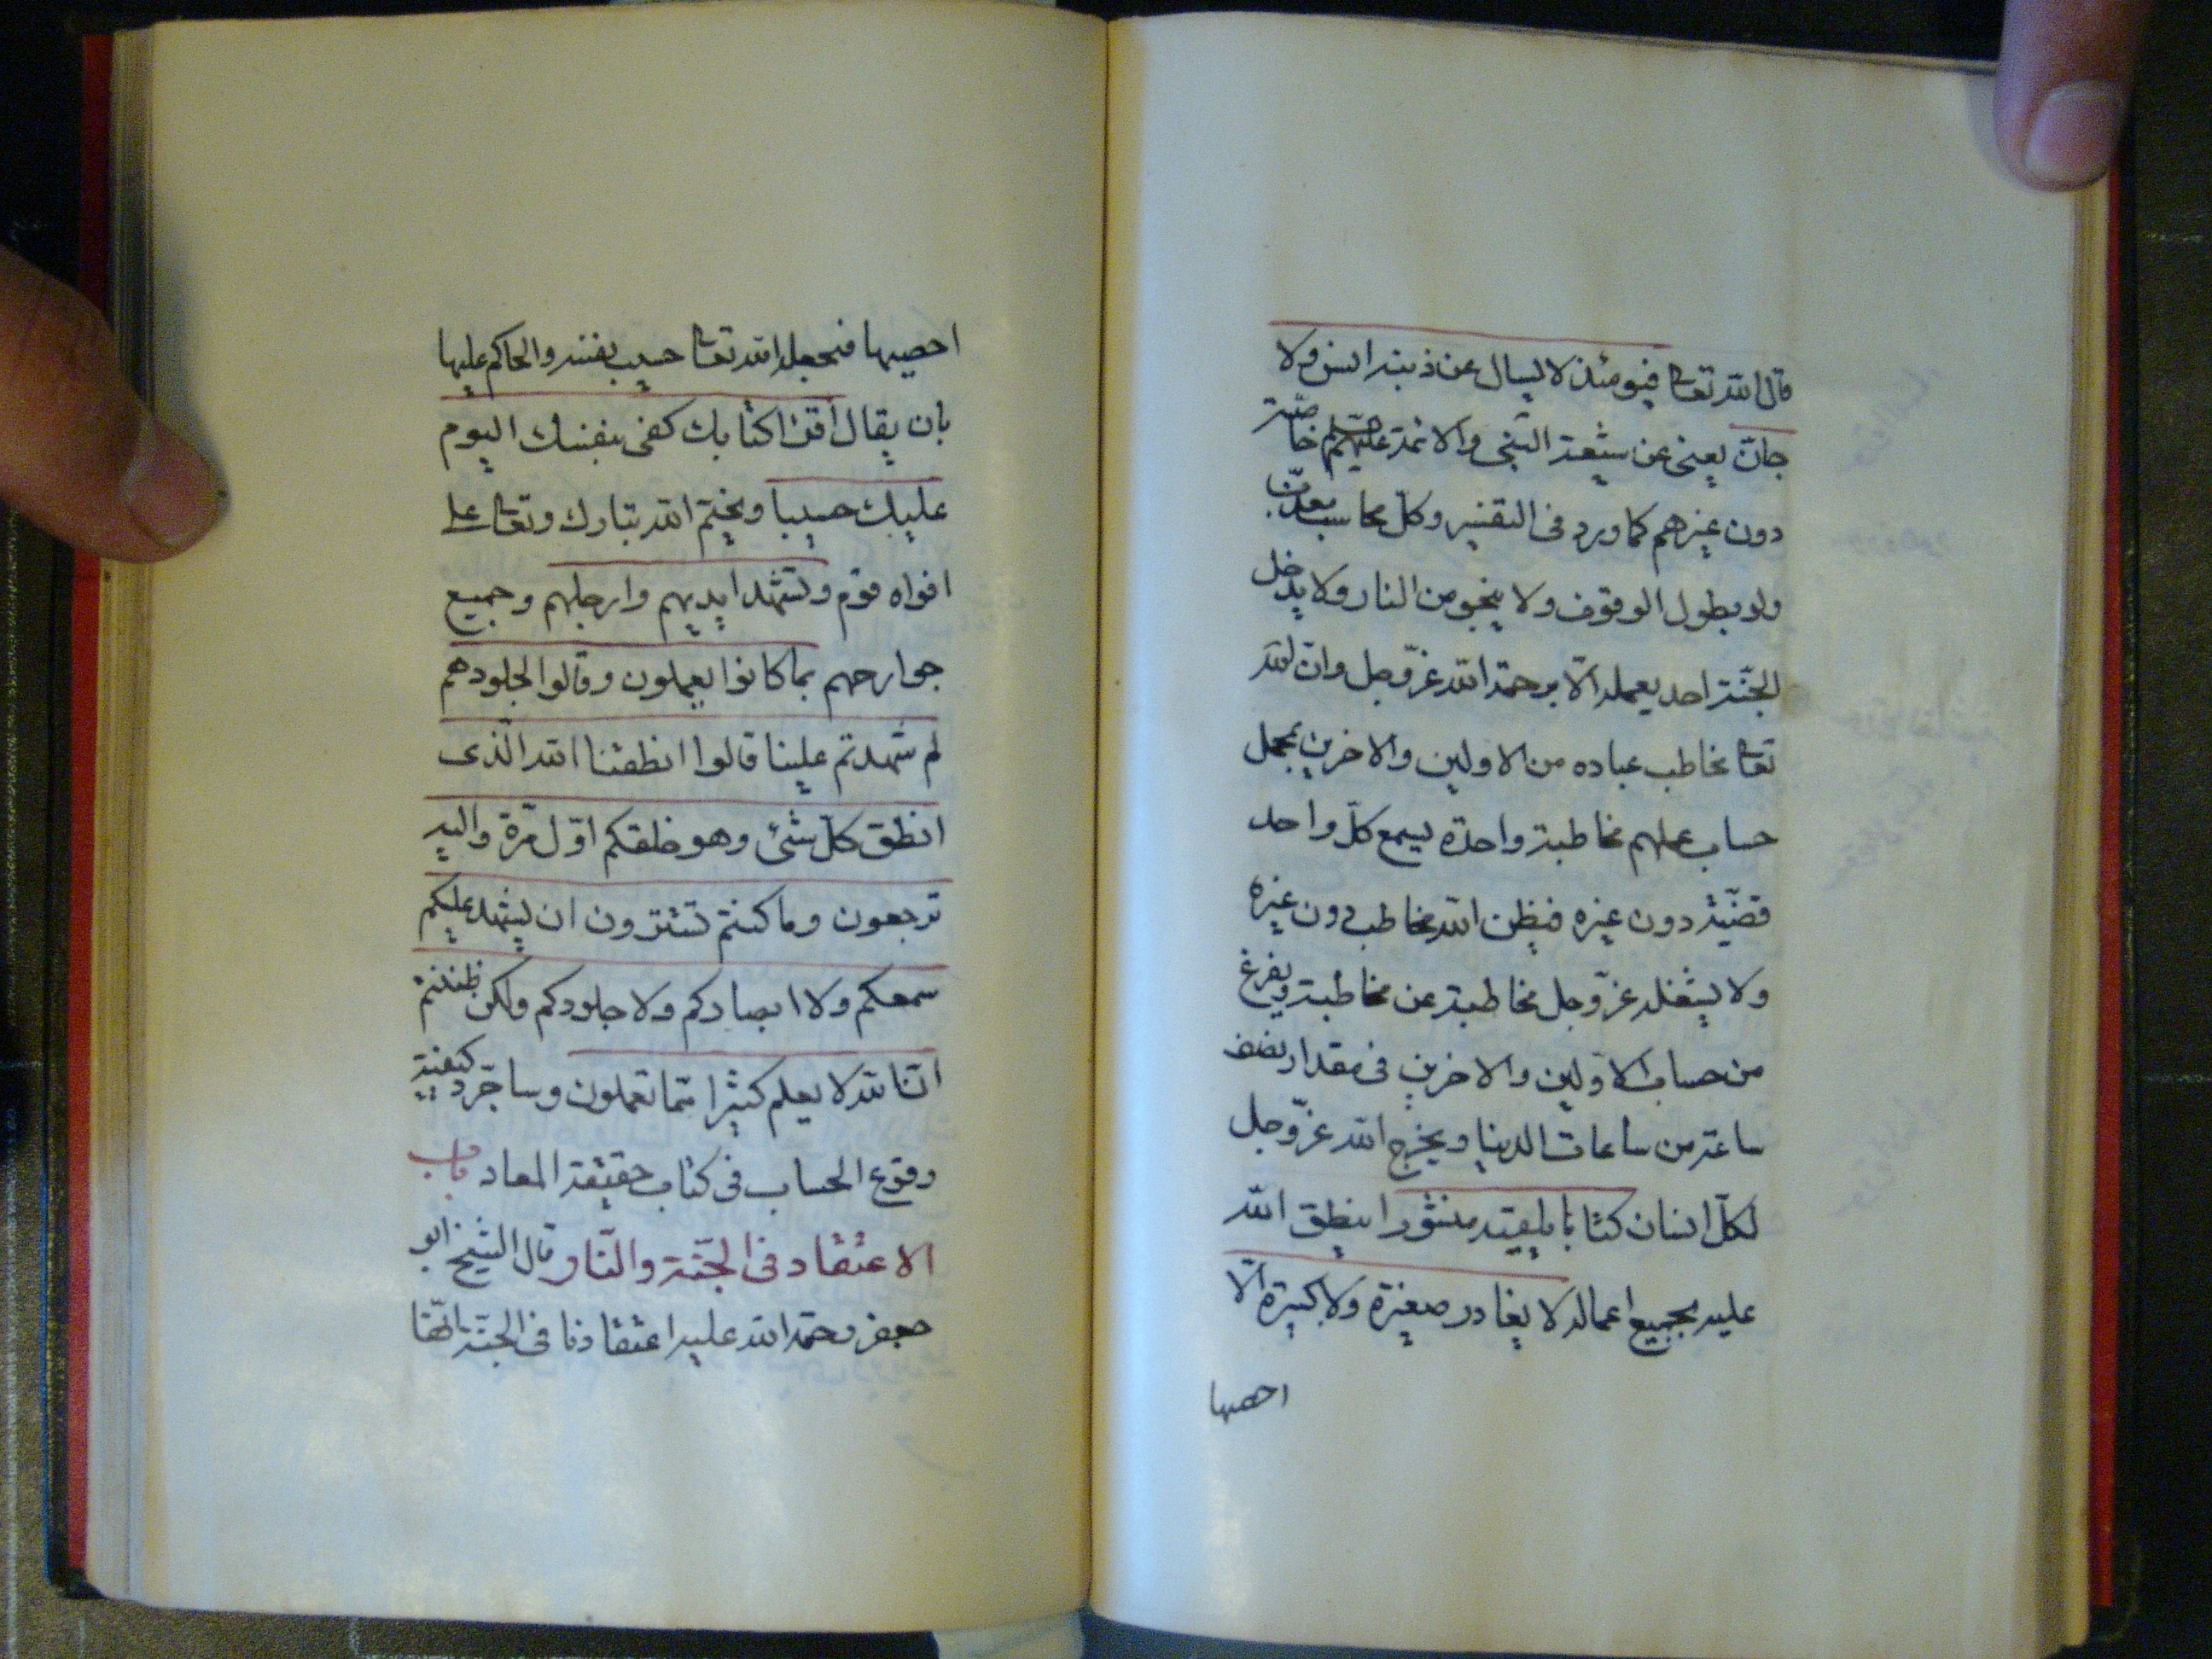 قال الله تعالى فيومئذ لا يسال عن ذنبه انس ولا
جانّ يعنى عن شيعة النبى والائمة عليهم خاصّة
دون غيرهم كما ورد فى التفسير وكل محاسب معذّب
ولو بطول الوقوف ولا ينجو من النار ولا يدخل
الجنّة احد بعمله الّا برحمة الله عزّ وجل وانّ الله
تعالى يخاطب عباده من الاولين والاخرين بمجمل
حساب عملهم مخاطبة واحدة يسمع كلّ واحد
قضيّته دون غيره فيظن انه المخاطب دون غيره
ولا يشغله عزّ وجل مخاطبة عن مخاطبة ويفرغ
من حساب الاوّلين والاخرين فى مقدار نصف
ساعة من ساعات الدنيا ويخرج الله عزّ وجل
لكلّ انسان كتابا يلقيه منشورا ينطق الله
عليه بجميع اعماله لا يغادر صغيرة ولا كبيرة الّا
احصيها
احصيها فيجعله الله تعالى حسيب نفسه والحاكم عليها
بان يقال اقرا كتابك كفى بنفسك اليوم
عليك حسيبا ويختم الله تبارك وتعالى على
افواه قوم وتشهد ايديهم وارجلهم وجميع
جوارحهم بما كانوا يعملون وقالوا لجلودهم
لم شهدتم علينا قالوا انطقنا الله الّذى
انطق كلّ شئ وهو خلقكم اوّل مرّة واليه
ترجعون وما كنتم تستترون ان يشهد عليكم
سمعكم ولا ابصاركم ولا جلودكم ولكن ظننتم
انّ الله لا يعلم كثيرا ممّا تعملون وساجرّد كيفية
وقوع الحساب فى كتاب حقيقة المعاد باب
الاعتقاد فى الجنّة والنّار قال الشيخ ابو
جعفر رحمة الله عليه اعتقادنا فى الجنّة انّها